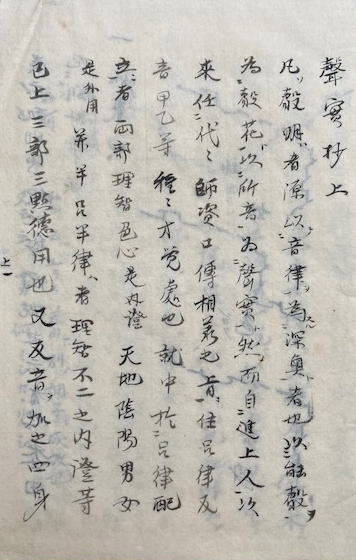 聲實抄上
凡ソ聲明者源以音律為深奥者也以能聲
為聲花以所音為聲實然而自進上人以
来任代々師資口傳相羕也旨住呂律及
音甲乙等種々才覚處也就中於呂律配
立者両部理智色心是内證天地陰陽男女
是外用
并半呂半律者理智不二之内證等
已上三部三點德用也又反音加之四身
上一